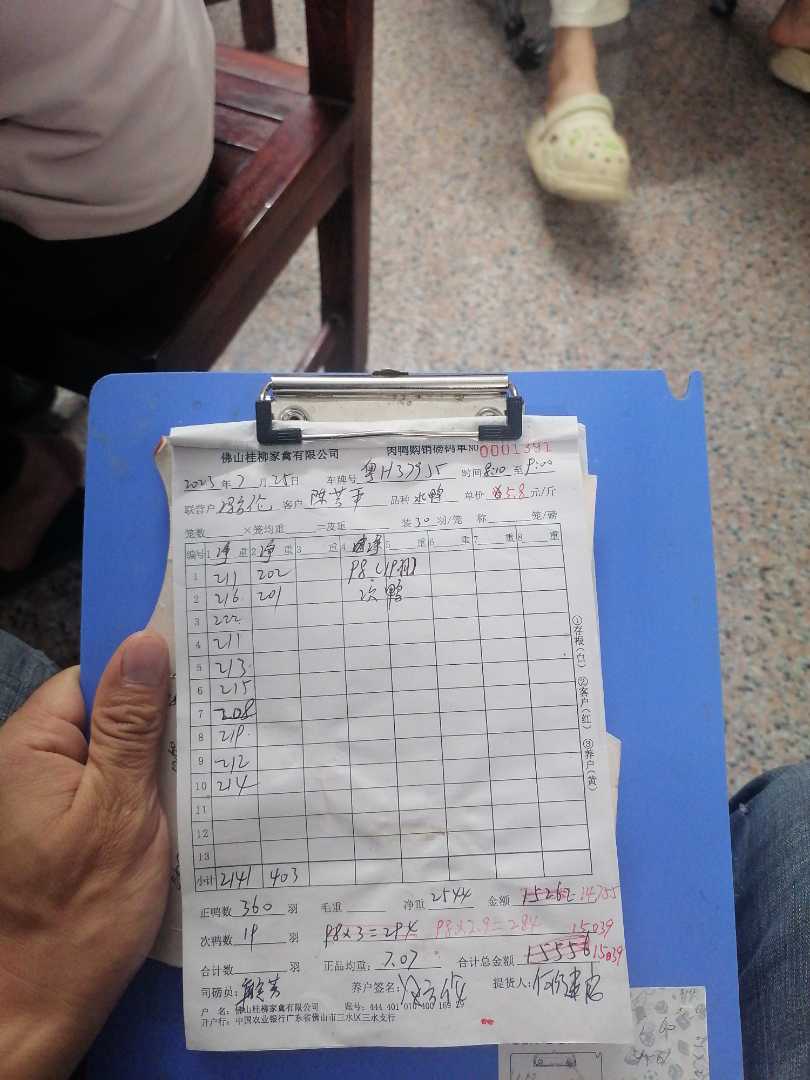 佛山桂柳家禽有限公司 肉鸭购销磅码单 NO 0001391
2023年7月25日 车牌号 粤H379J5 时间8:10至9:00
联营户 客户 陈芸平 品种 水鸭 单价 5.8 元/斤
笼数 ×笼均重 =皮重 装30羽/笼 称 笼/磅
编号 1 净重 2 净重 3 重 4 重 5 重 6 重 7 重 8 重
1 211 202 98(19羽)
2 216 201 次鸭
3 222
4 211
5 213
6 215
7 208
8 219
9 212
10 214
11
12
13
小计 2141 403
①存根(白) ②客户(红) ③养户(黄)
正鸭数 360 羽 毛重 净重 2544 金额 15262 14755
次鸭数 19 羽 98×3=294 98×2.9=284 15039
合计数 羽 正品均重: 7.07 合计总金额 15556 15039
司磅员: 养户签名: 提货人:
户 名: 佛山桂柳家禽有限公司 账号: 444 401 010 400 169 27
开户行: 中国农业银行广东省佛山市三水区三水支行